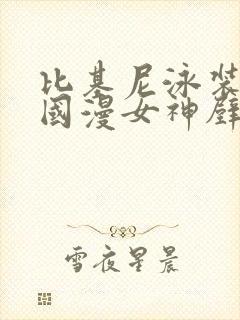 比基尼泳裝
國漫女神壁
雪夜星晨